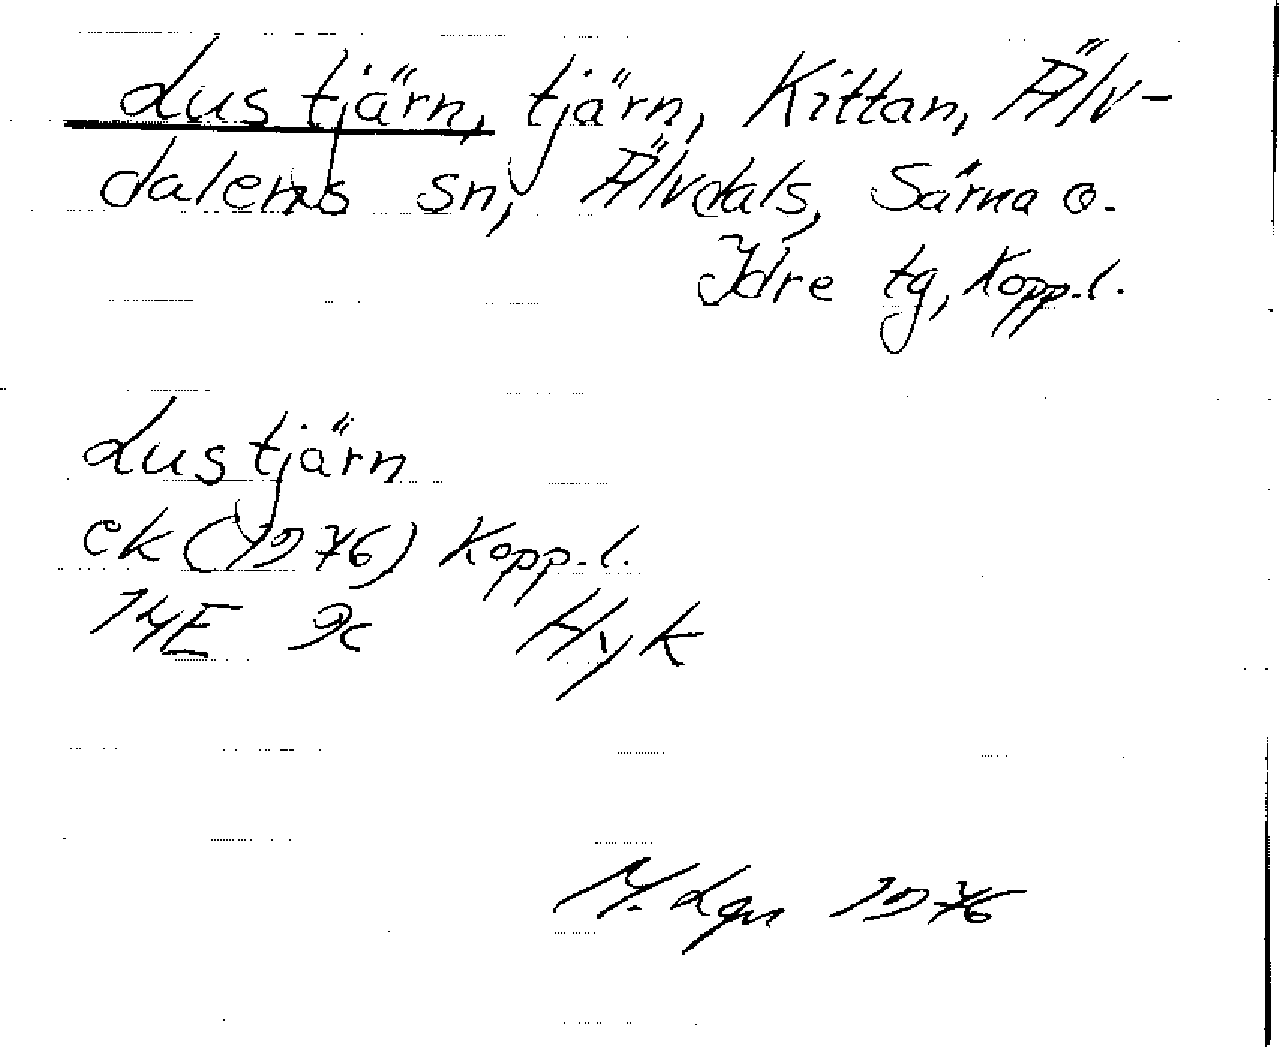 Lustjärn, tjärn, Kittan, Älv-
dalens sn, Älvdals, Särna o.
Idre tg, Kopp. l.
Lustjärn
ek (1976) Kopp. l.
14E 9c Hyk
1976